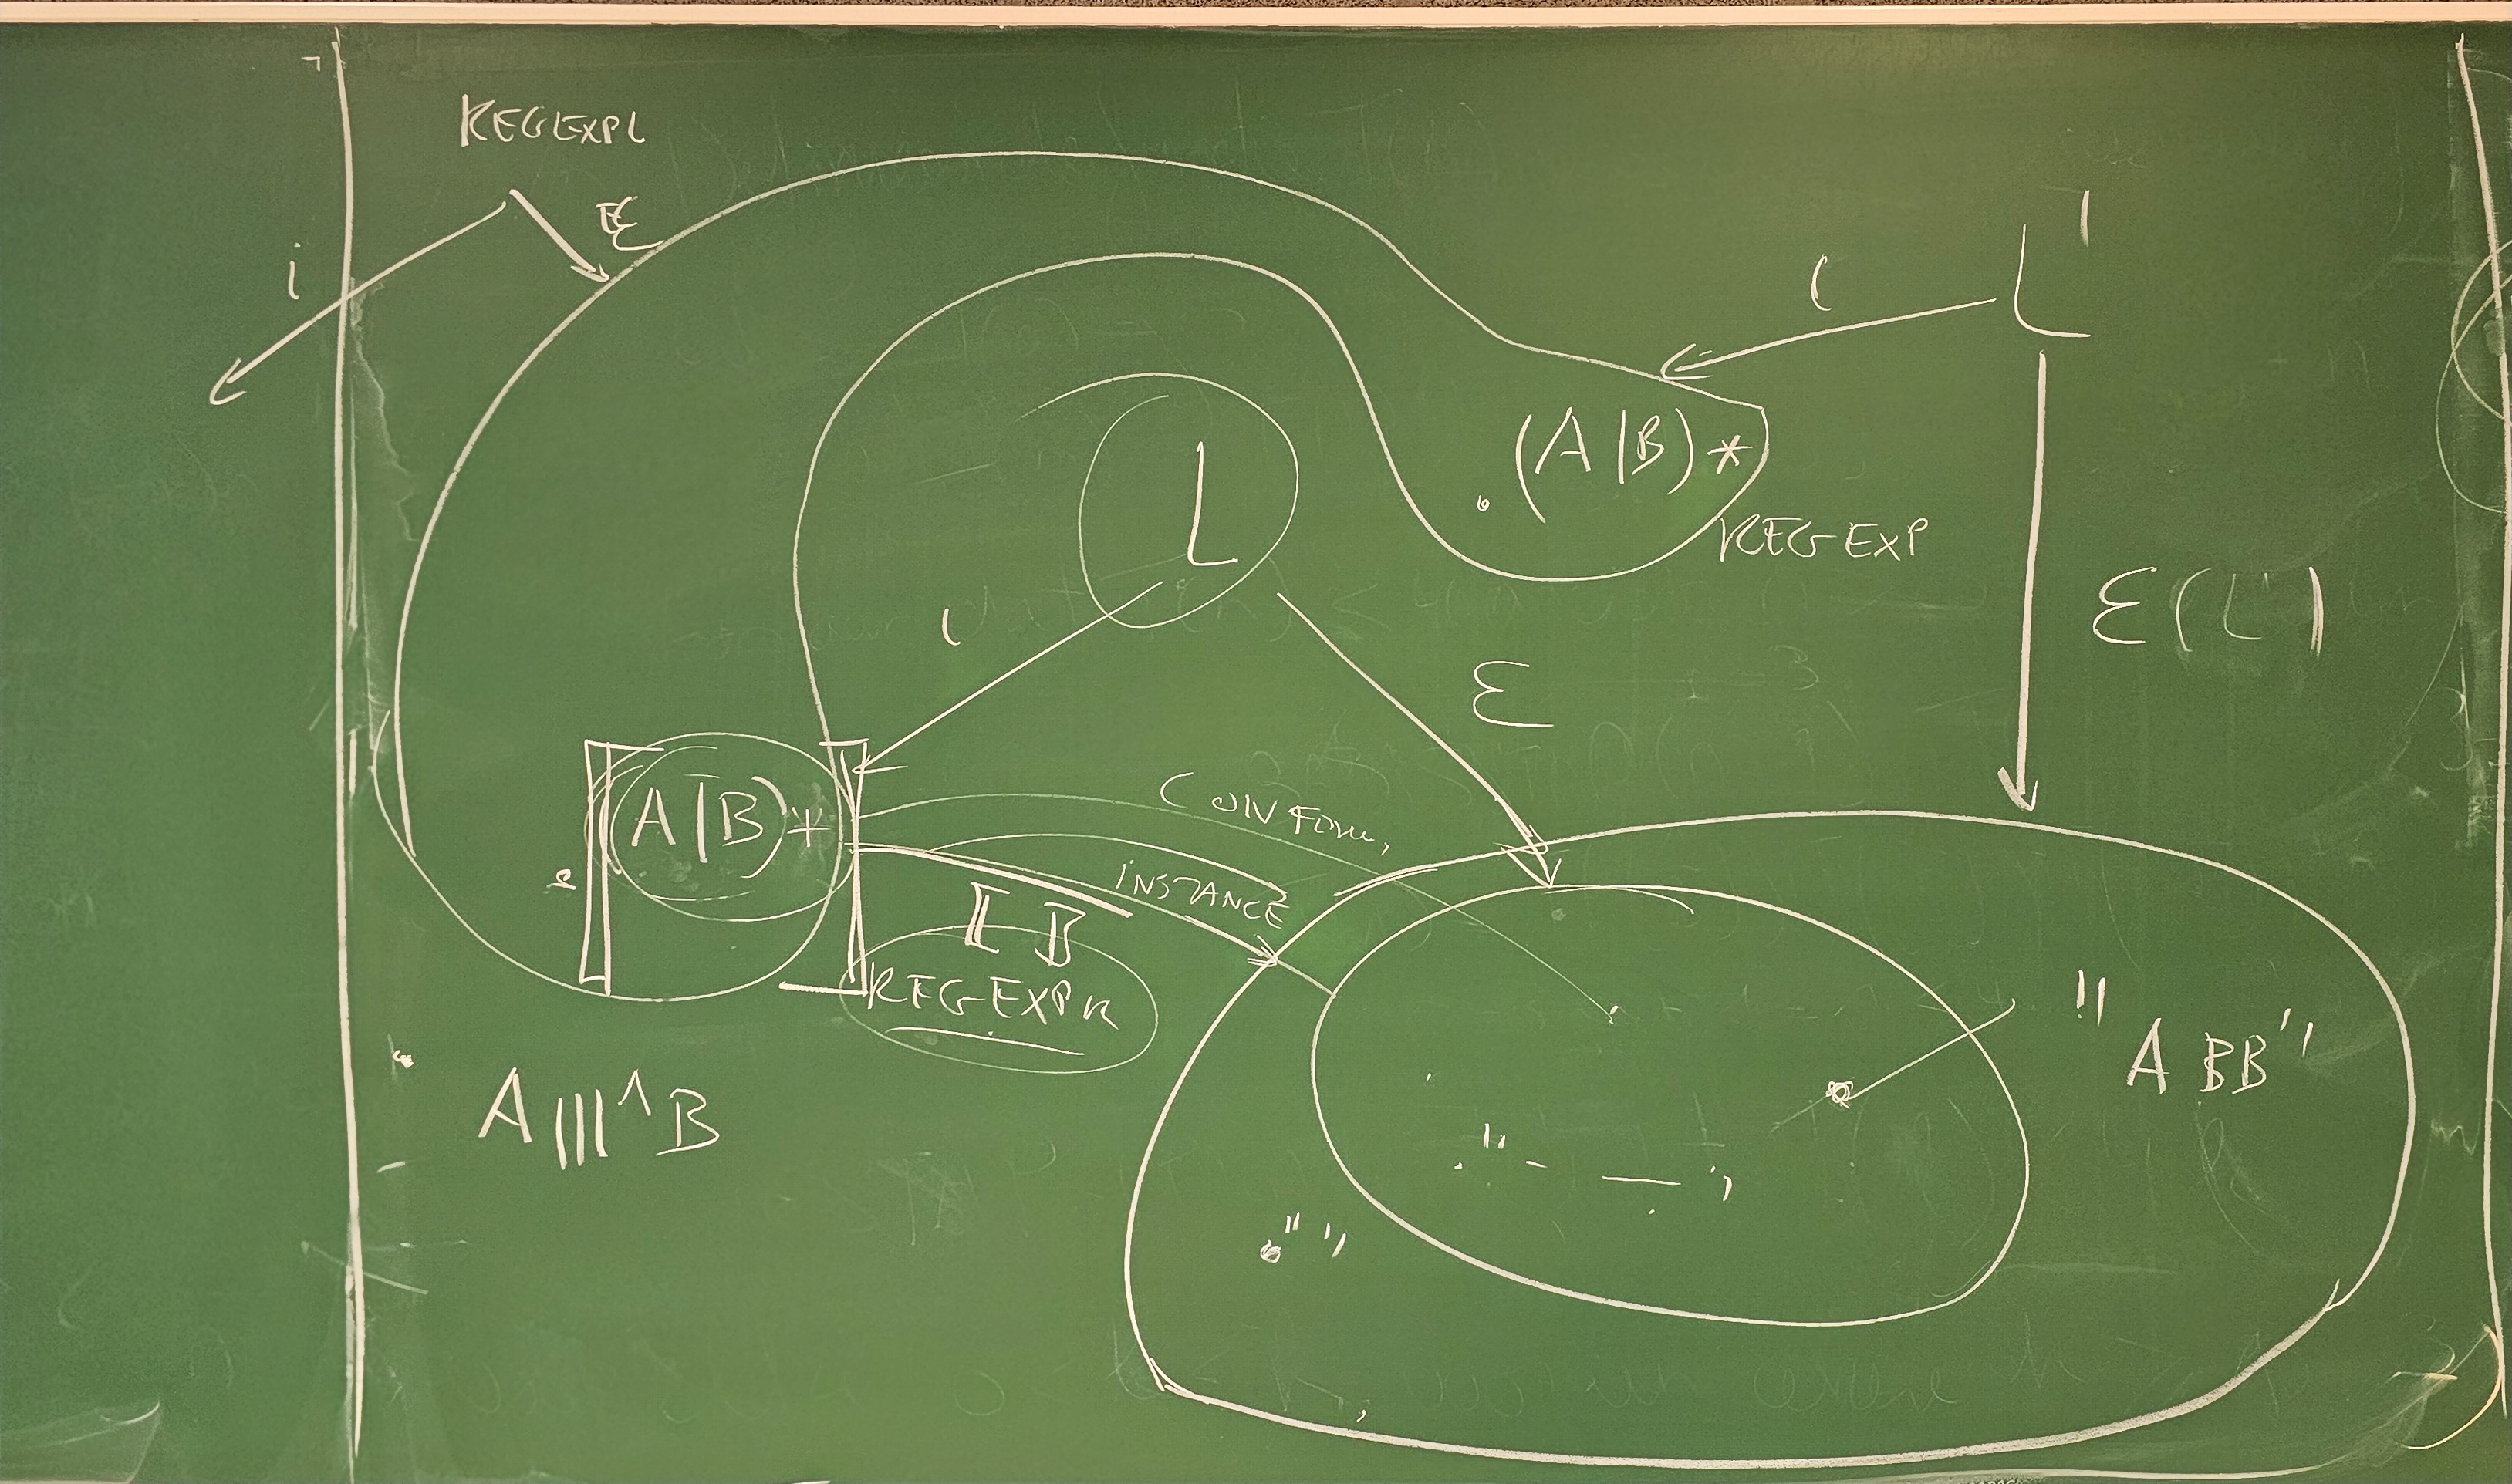 REGEXPL
ε
i
L'
i
(A|B)*
REGEXP
L
i
ε
ε(L')
(A|B)+
CONFORM,
INSTANCE
⟦ ⟧
REGEXPR
"ABB"
A|||^B
" "